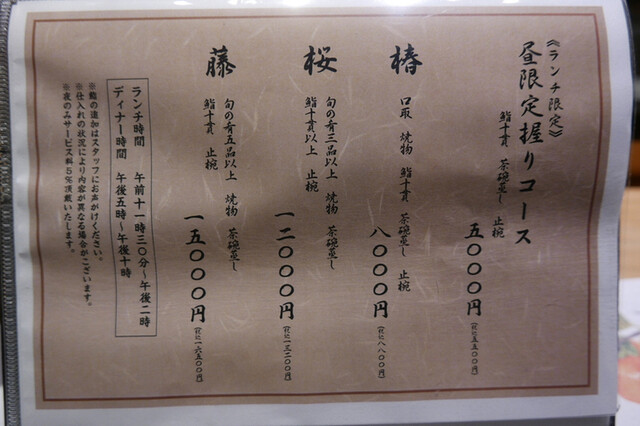 《ランチ限定》
昼限定握りコース
鮨十貫 茶碗蒸し 止椀
五〇〇〇円
(税込五五〇〇円)
椿
口取 焼物 鮨十貫 茶碗蒸し 止椀
八〇〇〇円
(税込八八〇〇円)
桜
旬の肴三品以上 焼物 茶碗蒸し
鮨十貫以上 止椀
一二〇〇〇円
(税込一三二〇〇円)
藤
旬の肴五品以上 焼物 茶碗蒸し
鮨十貫 止椀
一五〇〇〇円
(税込一六五〇〇円)
ランチ時間 午前十一時三〇分～午後二時
ディナー時間 午後五時～午後十時
※鮨の追加はスタッフにお声がけください。
※仕入れの状況により内容が異なる場合がございます。
※夜のみサービス料5%頂戴いたします。